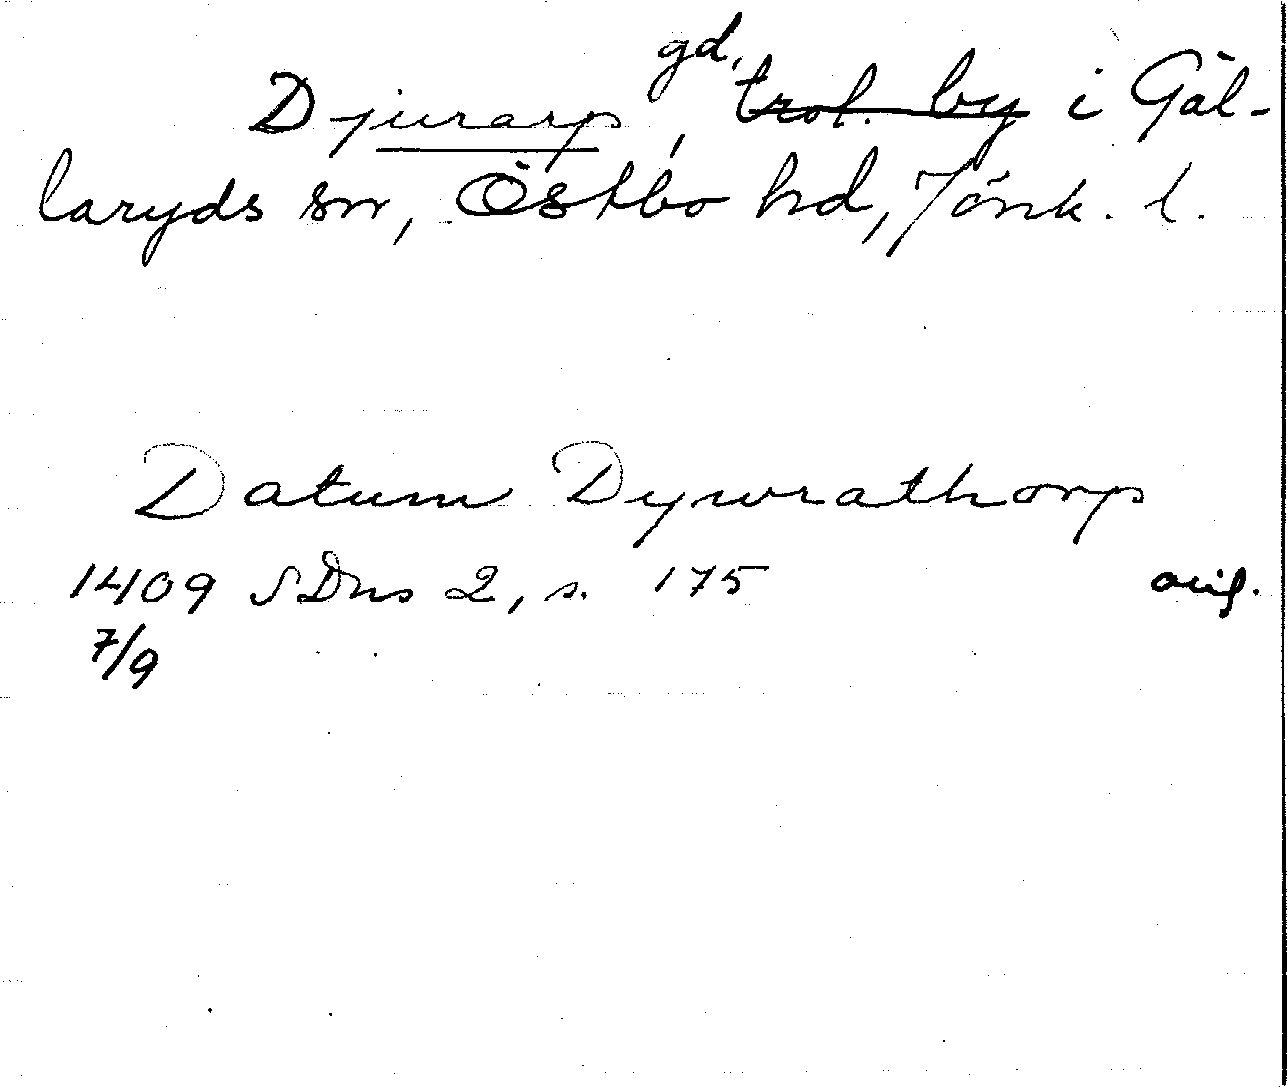 Djurarp, gd, ~~trol. by~~ i Gäl-
laryds sn, Östbo hd, Jönk. l.
Datum Dywrathorp
1409 SDns 2, s. 175 orig.
7/9